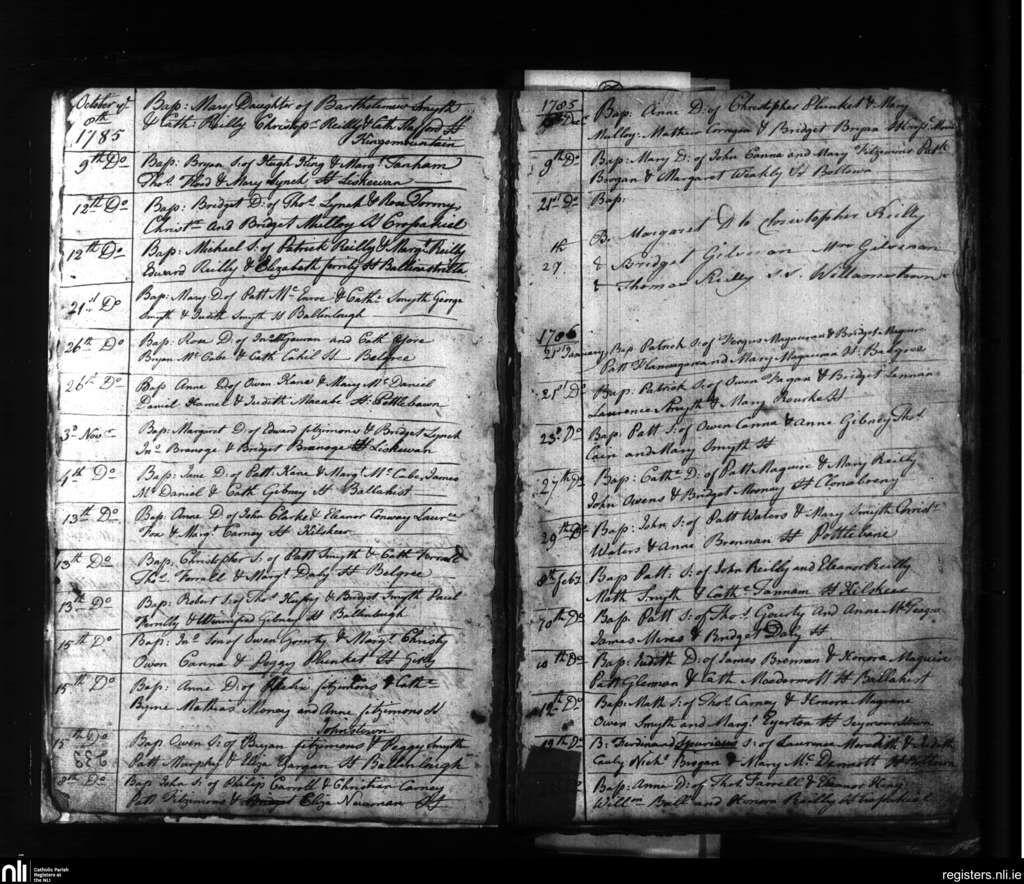 October ye Bap: Mary Daughter of Bartholomew Smyth
8th & Cath: Reilly Christopr Reilly & Cath Stafford St
1785 Kingsmountain
9th Do Bap: Bryan S: of Hugh King & Margt Fanham
Thos Flood & Mary Lynch St Liskeevan
12th Do Bap: Bridget D: of Thos Lynch & Rose
Christn And Bridget Mulloy St Crosakiel
12th Do Bap: Michael S: of Patrick Reilly & Margt Reilly
Edward Reilly & Elizabeth St
21st Do Bap: Mary D. of Patt Mc & Cathe Smyth George
Smyth & Judith Smyth St Ballinlough
26th Do Bap: Rose D. of Jno McGowran and Cath
Bryan Mc Cabe & Cath Cahil St Belgree
26th Do Bap Anne D of Owen Kane & Mary Mc Daniel
Daniel & Judith Macabe St: Pottlebawn
3d Novr Bap: Margaret D: of Edward fitzimons & Bridget Lynch
Jno Branoge & Bridget Branoge St Liskeevan
4th Do Bap: Jane D: of Patt: Kane & Margt Mc Cabe James
Mc Daniel & Cath Gibney St Ballahist
13th Do Bap: Anne D of John Clarke & Eleanor Conway Laurce
Fox & Margt Carney St Kilskeer
13th Do Bap, Christopher S: of Patt Smyth & Cath Ferrall
Thos Ferrall & Margt Daly St Belgree
13th Do Bap: Robert S: of Thos & Bridget Smyth Paul
& Winnifred Gibney St Ballinlough
15th Do Bap: Jno Son of Owen & Margt Christy
Owen Canna & Peggy Plunket St
15th Do Bap: Anne D: of fitzimons & Cathe
Byrne Mathias Money and Anne fitzimons St
Johnstown
15th Do Bap: Owen S: of Bryan fitzimons & Peggy Smyth
Patt Murphy & Eliza Gargan St Ballinlough
8th Do Bap John S: of Philip Carroll & Christian Carney
Patt Fitzimons & Eliza Newman St
1785 Bap: Anne D: of Christopher Plunket & Mary
Decr Mulloy: Mathew Corrigan & Bridget Bryan
9th Do Bap: Mary D: of John Canna and Mary Fitzimons Patk
Brogan & Margaret Weakly St Boltown
21st Do Bap:
B. Margaret D to Christopher Reilly
27 & Bridget Gilsenan Gilsenan
& Thomas Reilly S.S. Williamstown
1786
January Bap Patrick S: of Fergus Magauran & Bridget Maguire
Patt Flannagan and Mary Magauran St: Balgree
21st Do Bap: Patrick S: of Owen Fagan & Bridget Lennan
Lawrence Smyth & Mary Rourke St
23d Do Bap: Patt S: of Owen Canna & Anne Gibney Thos
Cain and Mary Smyth St
27th Do Bap: Cathe D: of Patt: Maguire & Mary Reilly
John Owens & Bridget Mooney St Clonabreny
29th Do Bap: John S: of Patt Waters & Mary Smyth Christr
Waters & Anne Brennan St Pottlebane
8th Feb: Bap Patt: S: of John Reilly and Eleanor Reilly
Math Smyth & Cathe Fannam St Kilskeer
10th Do Bap. Patt S: of Thos And Anne
James & Bridget Daly St
10th Do Bap: Judith D: of James Brennan & Honora Maguire
Patt & Cath Macdermott St Ballahist
12th Do Bap: Math S: of Thos Carney & Honora Magrane
Owen Smyth and Margt Egerton St Seymourstown
19th Do B: Ferdinand Spurious S: of Laurence Meredith & Judith
Nichs Brogan & Mary Mc Dermott St Boltown
Bap: Anne D: of Thos Farrell & Eleanor
Willm Ball and Honora Reilly St Crosakiel
nli Catholic Parish
Registers at
the NLI
registers.nli.ie